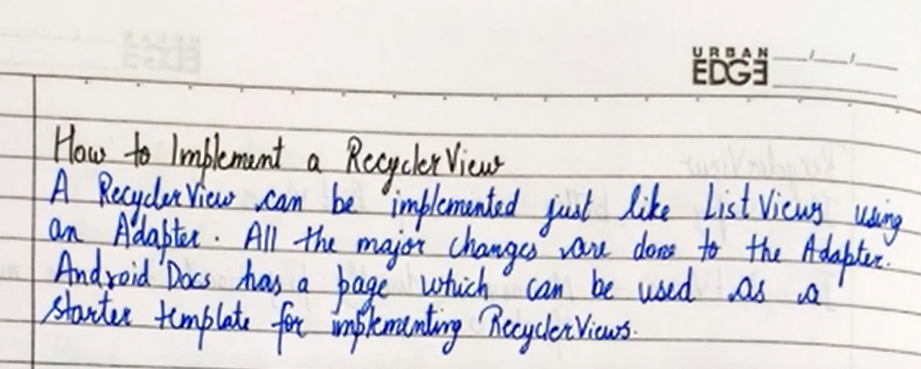 URBAN
EDGE
How to Implement a RecyclerView
A RecyclerView can be implemented just like ListViews using
an Adapter. All the major changes are done to the Adapter.
Android Docs has a page which can be used as a
starter template for implementing RecyclerViews.